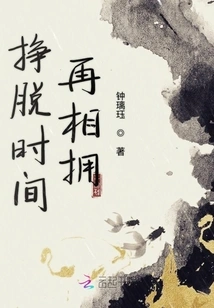 挣脱时间
再相拥
钟瑞珏 ◎ 著